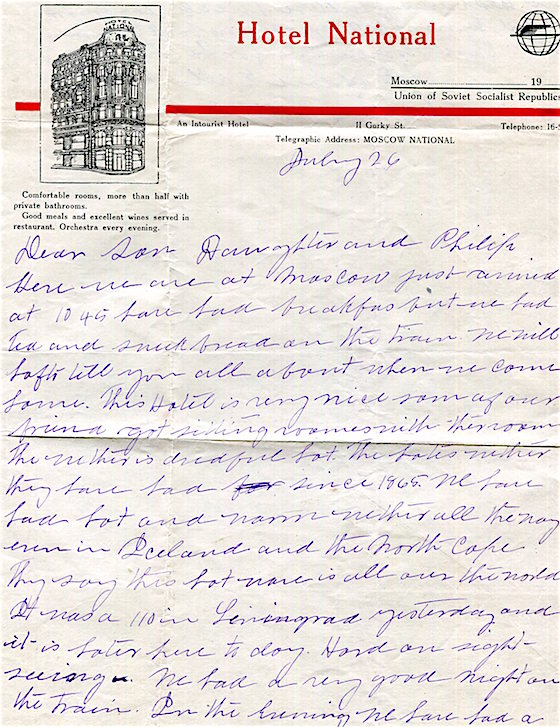 HOTEL
NATIONAL
Hotel National
Moscow 19
Union of Soviet Socialist Republics
An Intourist Hotel 11 Gorky St. Telephone: 16-
Telegraphic Address: MOSCOW NATIONAL
July 26
Comfortable rooms, more than half with
private bathrooms.
Good meals and excellent wines served in
restaurant. Orchestra every evening.
Dear Son Daughter and Philip
Here we are at Moscow just arrived
at 10 45 have had breakfas but we had
tea and bread on the train. We will
hafto tell you all about when we come
home. This Hotel is very nice som of our
friend got sitting roomes with ther room
The wether is dredful hot. The hotes wether
they have had since 1865. We have
had hot and warm wether all the way
even in Iceland and the North Cape
They say this hot wave is all over the world
It was a 110 in Leningrad yesterday and
it is hoter here to day. Hard on sight-
seeing. We had a very good night on
the train. In the Evening we have had a